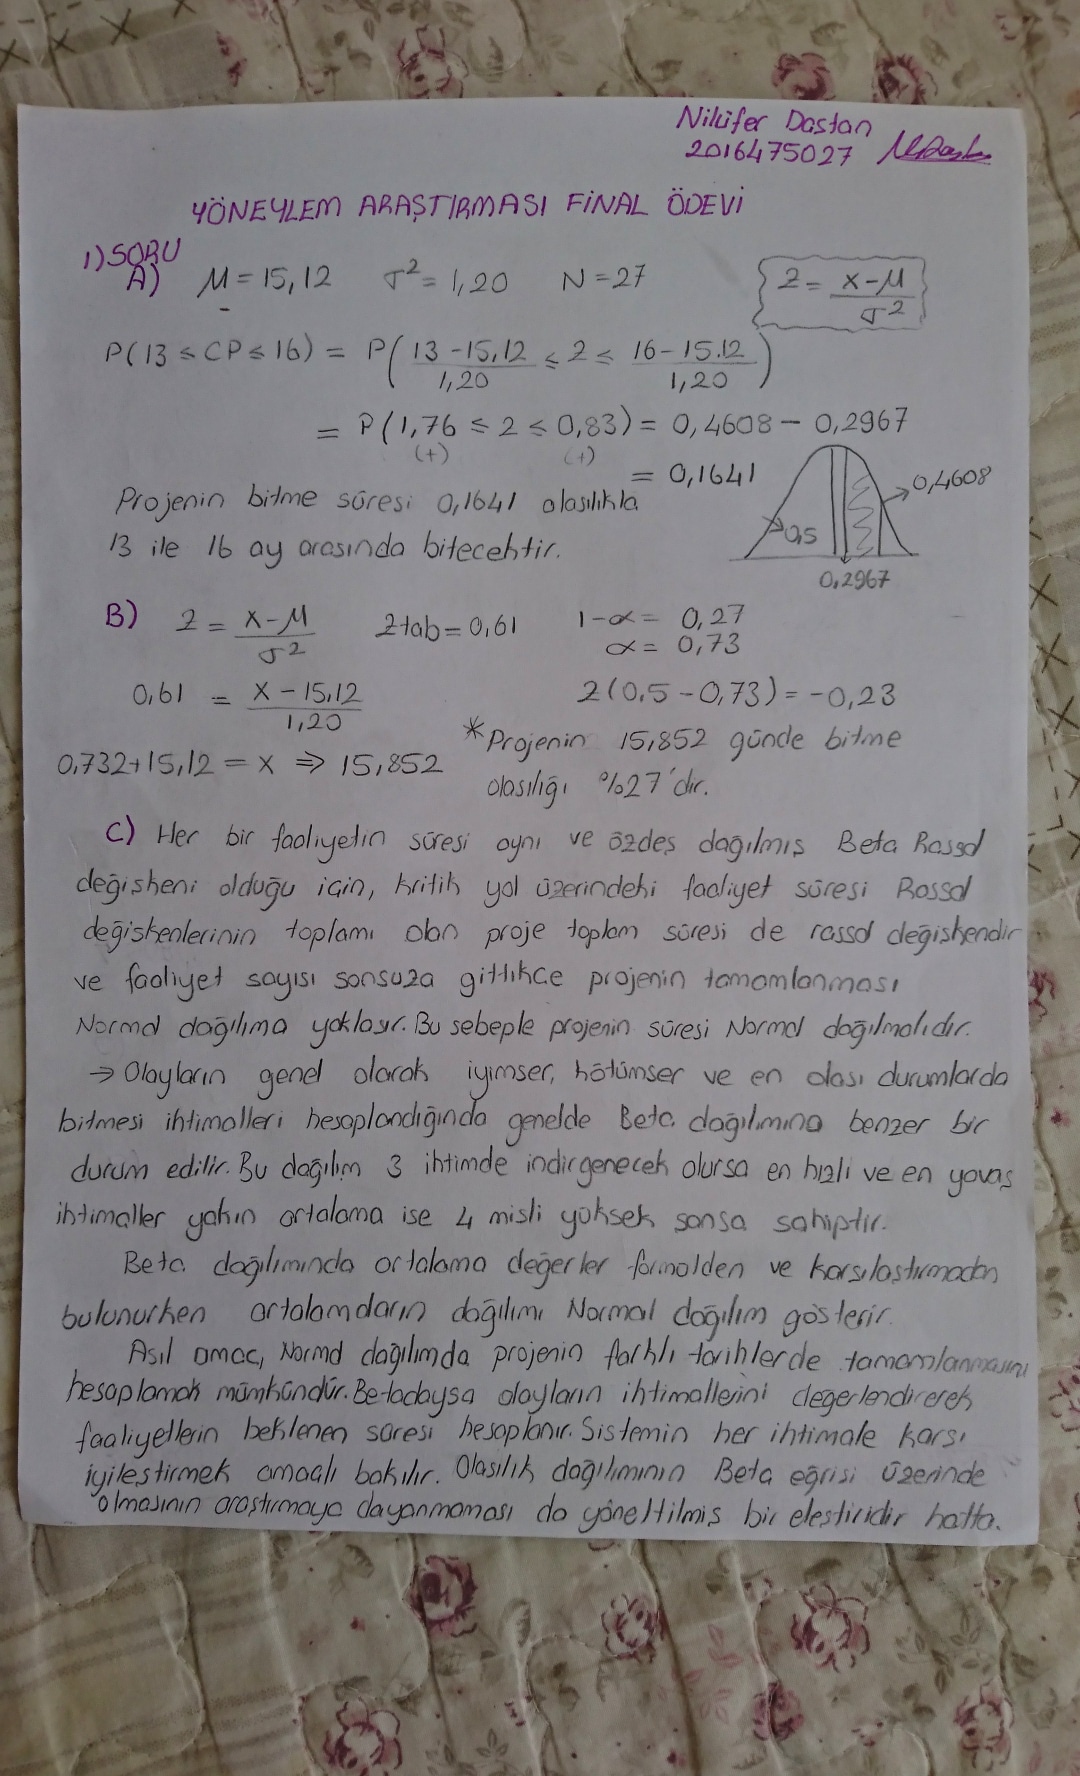 Nilüfer Dastan
2016475027
YÖNEYLEM ARAŞTIRMASI FİNAL ÖDEVİ
1) SORU
A) M = 15,12 σ² = 1,20 N = 27 Z = x-M / σ²
P(13 ≤ CP ≤ 16) = P( 13-15,12 / 1,20 ≤ Z ≤ 16-15.12 / 1,20 )
= P(1,76 ≤ Z ≤ 0,83) = 0,4608 - 0,2967
(+) (+)
= 0,1641
0,4608
0,5
0,2967
Projenin bitme süresi 0,1641 olasılıkla
13 ile 16 ay arasında bitecektir.
B) Z = x-M / σ² Ztab = 0,61 1-α = 0,27
α = 0,73
0,61 = x-15,12 / 1,20 Z(0,5-0,73) = -0,23
0,732+15,12 = x ⇒ 15,852
* Projenin 15,852 günde bitme
olasılığı %27'dir.
C) Her bir faaliyetin süresi aynı ve özdeş dağılmış Beta Rassal
değişkeni olduğu için, kritik yol üzerindeki faaliyet süresi Rassal
değişkenlerinin toplamı olan proje toplam süresi de rassal değişkendir
ve faaliyet sayısı sonsuza gittikçe projenin tamamlanması
Normal dağılıma yaklaşır. Bu sebeple projenin süresi Normal dağılmalıdır.
→ Olayların genel olarak iyimser, kötümser ve en olası durumlarda
bitmesi ihtimalleri hesaplandığında genelde Beta dağılımına benzer bir
durum edilir. Bu dağılım 3 ihtimde indirgenecek olursa en hızlı ve en yavaş
ihtimaller yakın ortalama ise 4 misli yüksek şansa sahiptir.
Beta dağılımında ortalama değerler formülden ve karşılaştırmadan
bulunurken ortalamaların dağılımı Normal dağılım gösterir.
Asıl amaç, Normal dağılımda projenin farklı tarihlerde tamamlanmasını
hesaplamak mümkündür. Betadaysa olayların ihtimallerini değerlendirerek
faaliyetlerin beklenen süresi hesaplanır. Sistemin her ihtimale karşı
iyileştirmek amaçlı bakılır. Olasılık dağılımının Beta eğrisi üzerinde
olmasının araştırmaya dayanmaması da yöneltilmiş bir eleştiridir hatta.